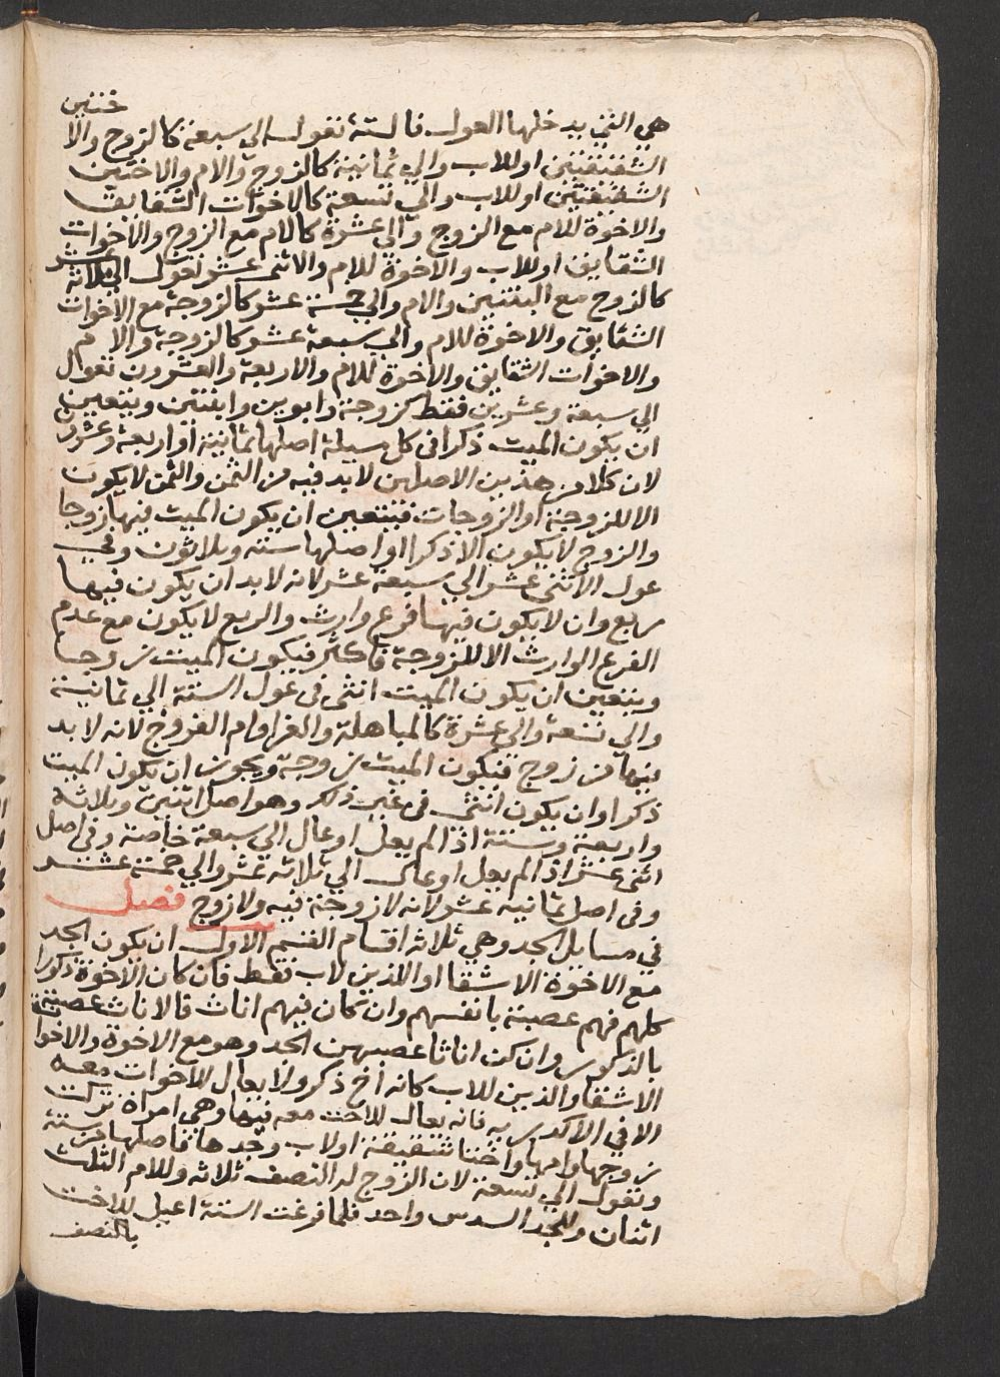 هي التي يدخلها العول فالستة تعول الي سبعة كالزوج والا
ختين
الشقيقتين او للاب والي ثمانية كالزوج والام والاختين
الشقيقتين او للاب والي تسعة كالاخوات الشقايق
والاخوة للام مع الزوج والي عشرة كالام مع الزوج والاخوات
الشقايق او للاب والاخوة للام والاثنى عشر تعول الي ثلاثة عشر
كالزوج مع البنتين والام والي خمسة عشر كالزوجة مع الاخوات
الشقايق والاخوة للام والي سبعة عشر كالزوجة والام
والاخوات الشقايق والاخوة للام والاربعة والعشرون تعول
الي سبعة وعشرين فقط كزوجة وابوين وابنتين ويتعين
ان يكون الميت ذكرا في كل مسيلة اصلها ثمانية او اربعة وعشرون
لان كلا من هذين الاصلين لا بد فيه من الثمن والثمن لا يكون
الا للزوجة او الزوجات فيتعين ان يكون الميت فيها زوجا
والزوج لا يكون الا ذكرا او اصلها ستة وثلاثون وفي
عول الاثنى عشر الي سبعة عشر لانه لا بد ان يكون فيها
ربع وان لا يكون فيها فرع وارث والربع لا يكون مع عدم
الفرع الوارث الا للزوجة فاكثر فيكون الميت زوجا
ويتعين ان يكون الميت انثى في عول الستة الي ثمانية
والي تسعة والي عشرة كالمباهلة والغرا وام الفروخ لانه لا بد
فيها من زوج فيكون الميت زوجة ويجوز ان يكون الميت
ذكرا وان يكون انثى في غير ذلك وهو اصل اثنين وثلاثة
واربعة وستة اذا لم يعل او عال الي سبعة خاصة وفي اصل
اثنى عشر اذا لم يعل او عال الي ثلاثة عشر والي خمسة عشر
وفي اصل ثمانية عشر لانه لا زوجة فيه ولا زوج فصل
في مسايل الجد وهي ثلاثة اقسام القسم الاول ان يكون الجد
مع الاخوة الاشقا او الذين لاب فقط فان كان الاخوة ذكورا
كلهم فهم عصبة بانفسهم وان كان فيهم اناث فالاناث عصبة
بالذكور وان كن اناثا عصبهن الجد وهو مع الاخوة والاخوات
الاشقا والذين للاب كانه اخ ذكر ولا يعال للاخوات معه
الا في الاكدرية فانه يعال للاخت معه فيها وهي امراة تركت
زوجها وامها واختا شقيقة او لاب وجدها فاصلها من ستة
وتعول الي تسعة لان الزوج له النصف ثلاثة وللام الثلث
اثنان وللجد السدس واحد فلما فرغت الستة اعيل للاخت
بالنصف